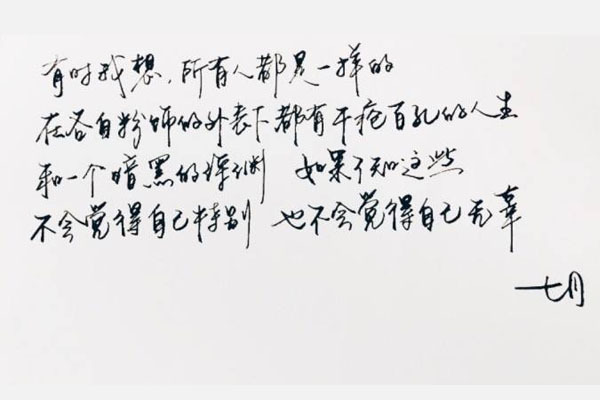 有时我想，所有人都是一样的
在各自粉饰的外表下都有千疮百孔的人生
和一个暗黑的深渊 如果了知这些
不会觉得自己特别 也不会觉得自己无辜
七月